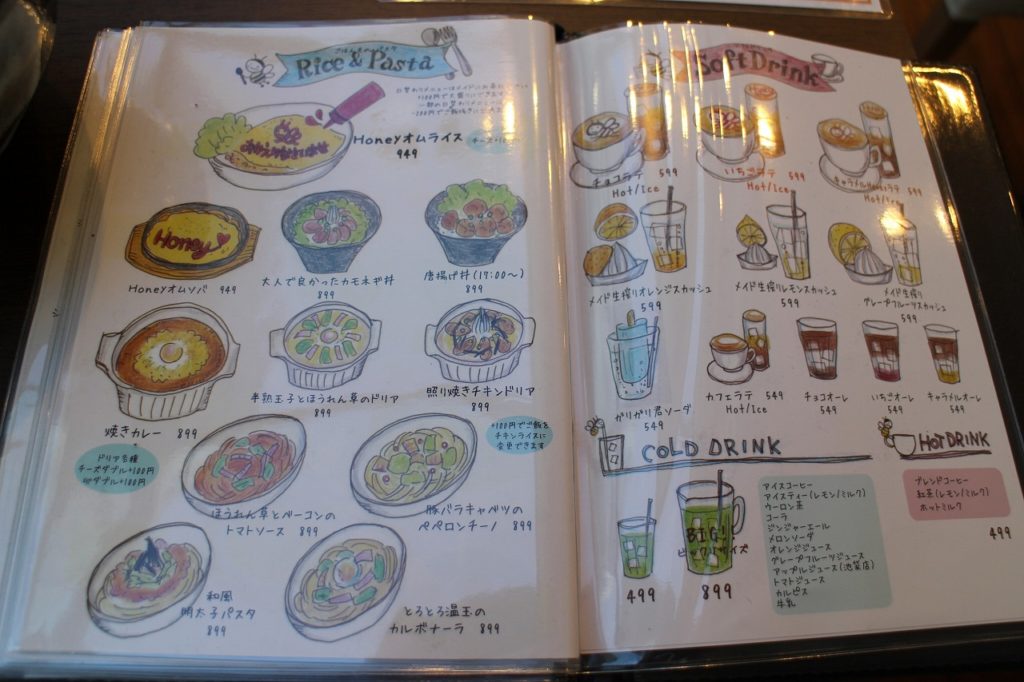 Rice & Pasta
Honeyオムライス
949
Honey
Honeyオムソバ 949
大人で良かったカモネギ丼
899
唐揚げ丼(17:00〜)
899
焼きカレー 899
半熟玉子とほうれん草のドリア
899
照り焼きチキンドリア
899
ドリア各種
チーズダブル+100円
卵ダブル+100円
+100円でご飯を
チキンライスに
変更できます
ほうれん草とベーコンの
トマトソース 899
豚バラキャベツの
ペペロンチーノ 899
和風
明太子パスタ
899
とろとろ温玉の
カルボナーラ 899
Soft Drink
チョコラテ 599
Hot/Ice
いちごラテ 599
Hot/Ice
599
Hot/Ice
メイド生搾りオレンジスカッシュ
599
メイド生搾りレモンスカッシュ
599
メイド生搾り
グレープフルーツスカッシュ
599
ガリガリ君ソーダ
549
カフェラテ 549
Hot/Ice
チョコオーレ
549
いちごオーレ
549
キャラメルオーレ
549
COLD DRINK
499
BIG!
ビックリサイズ
899
アイスコーヒー
アイスティー(レモン/ミルク)
ウーロン茶
コーラ
ジンジャーエール
メロンソーダ
オレンジジュース
グレープフルーツジュース
アップルジュース(池袋店)
トマトジュース
カルピス
牛乳
HOT DRINK
ブレンドコーヒー
紅茶(レモン/ミルク)
ホットミルク
499